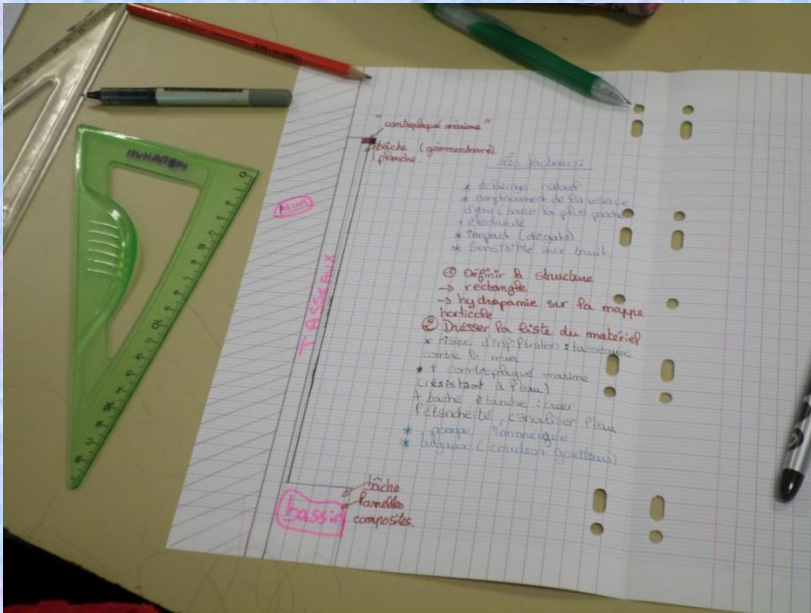 "contreplaqué marine"
bâche (géomembrane)
planche
Murs
TASSEAUX
* éclairage naturel
* emplacement de la réserve
d'eau (paroi la plus proche
+ électricité
* impact (dégâts)
* Sensibilité aux bruit
① Définir la structure
→ rectangle
→ hydroponie sur la nappe
horticole
② Dresser la liste du matériel
* risque d'infiltration :
contre le mur
* + contreplaqué marine
(résistant à l'eau)
+ bâche étanche : créer
l'étanchéité, canaliser l'eau
* pompe immergée
* tuyaux (
bâche
lamelles
composites.
bassin